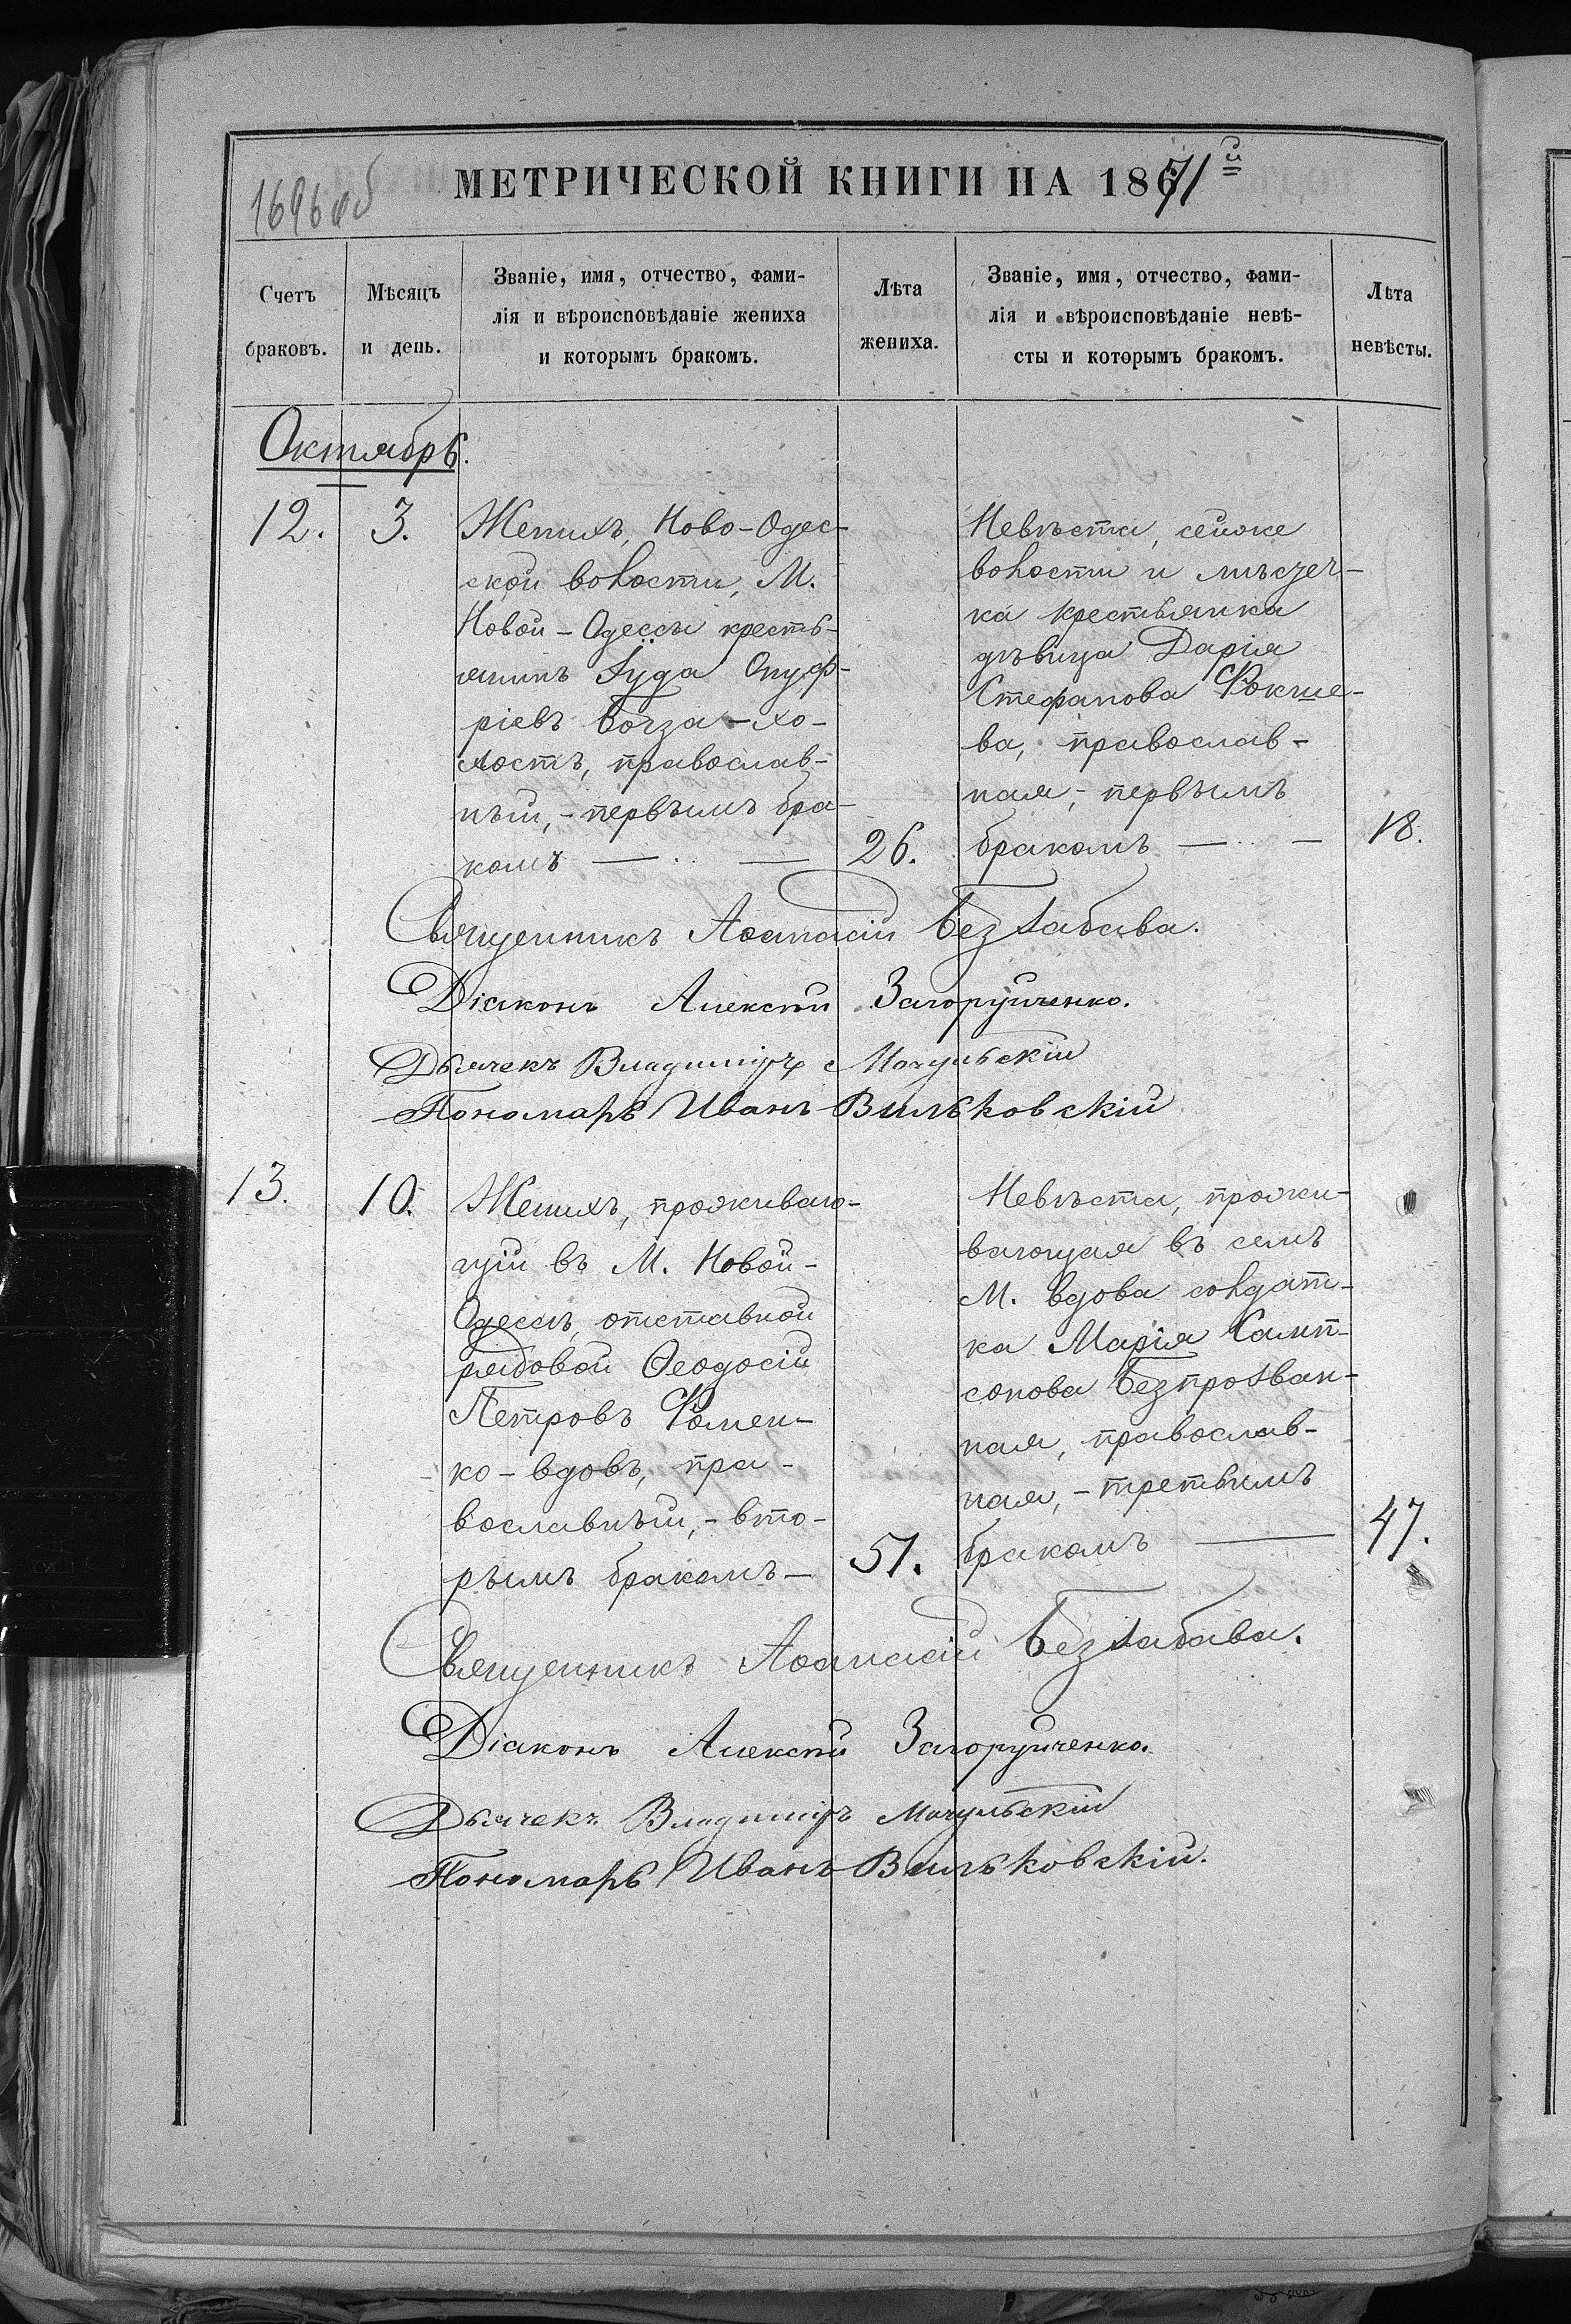 1696 об
МЕТРИЧЕСКОЙ КНИГИ НА 1871й
Счетъ браковъ.
Мѣсяцъ и день.
Званіе, имя, отчество, фами-
лія и вѣроисповѣданіе жениха
и которымъ бракомъ.
Лѣта жениха.
Званіе, имя, отчество, фами-
лія и вѣроисповѣданіе невѣ-
сты и которымъ бракомъ.
Лѣта невѣсты.
Октябрь.
12.
3.
Женихъ, Ново-Одес-
ской волости, М.
Новой-Одессы кресть-
янинъ Іуда Онуф-
ріевъ Богза-хо-
лостъ, православ-
ный,-первымъ бра-
комъ
26.
Невѣста, сейже
волости и мѣстеч-
ка крестьянка
дѣвица Дарія
Стефанова Фокше-
ва, православ-
ная,-первымъ
бракомъ
18.
Священникъ Аѳанасій Беззабава.
Діаконъ Алексѣй Загоруйченко.
Дьячекъ Владиміръ Мочульскій
Пономарь Иванъ Вильковскій
13.
10.
Женихъ, проживаю-
щій въ М. Новой-
Одессѣ, отставной
рядовой Ѳеодосій
Петровъ Фомен-
ко-вдовъ, пра-
вославный,-вто-
рымъ бракомъ-
51.
Невѣста, прожи-
вающая въ семъ
М. вдова солдат-
ка Марія Самп-
сонова Безпрозван-
ная, православ-
ная,-третьимъ
бракомъ
47.
Священникъ Аѳанасій Беззабава.
Діаконъ Алексѣй Загоруйченко.
Дьячекъ Владиміръ Мочульскій
Пономарь Иванъ Вильковскій.